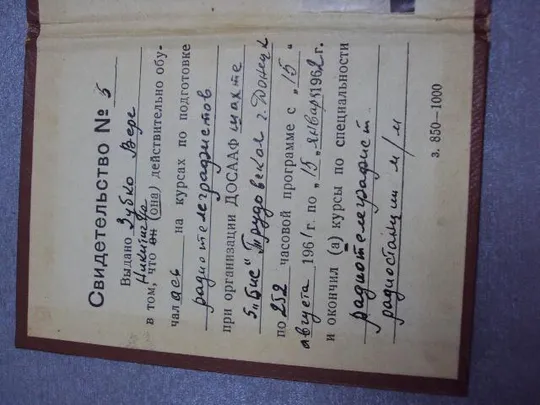 Свидетельство № 5
Выдано Зубко Вере
Никитичне
в том, что он (она) действительно обу-
чалась на курсах по подготовке
радиотелеграфистов
при организации ДОСААФ шахте
5 „Бис" Трудовская г. Донецк
по 252 часовой программе с „15"
августа 1961 г. по „15" января 1962 г.
и окончил (а) курсы по специальности
радиотелеграфист
радиостанции м/м
з. 850—1000